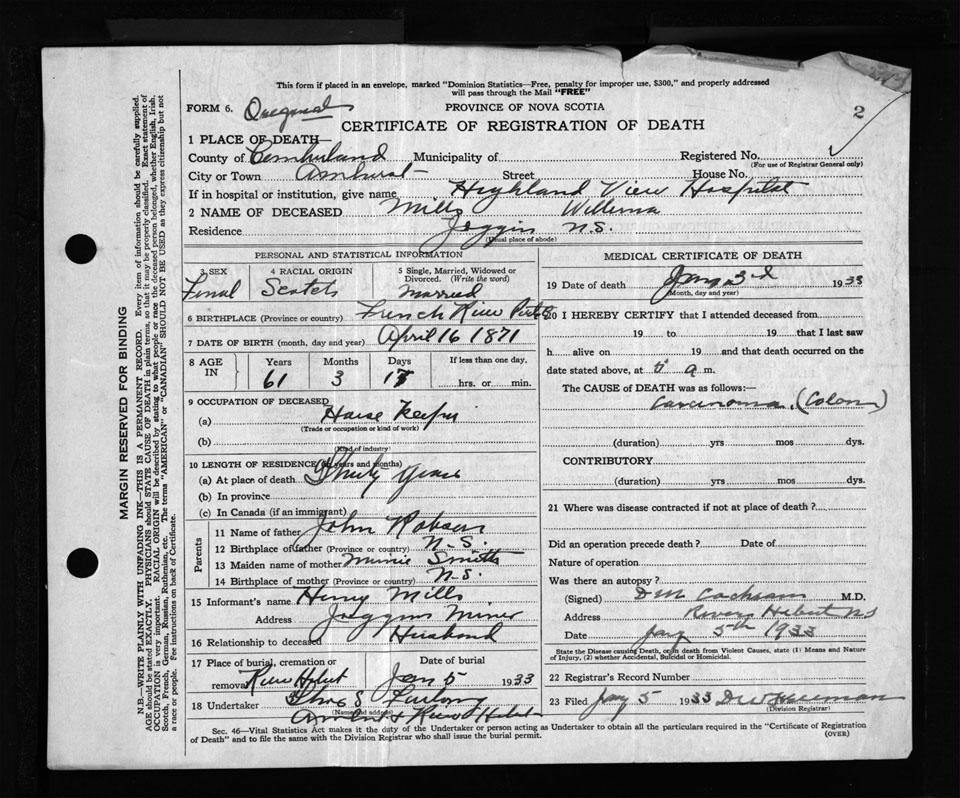 This form if placed in an envelope, marked "Dominion Statistics—Free, penalty for improper use, $300," and properly addressed
will pass through the Mail "FREE"
FORM 6. PROVINCE OF NOVA SCOTIA 2
CERTIFICATE OF REGISTRATION OF DEATH
1 PLACE OF DEATH
County of Cumberland Municipality of Registered No.
(For use of Registrar General only)
City or Town Amherst Street House No.
If in hospital or institution, give name Highland View Hospital
2 NAME OF DECEASED Mills Willema
Residence Joggin N.S.
(Usual place of abode)
PERSONAL AND STATISTICAL INFORMATION
3 SEX 4 RACIAL ORIGIN 5 Single, Married, Widowed or Divorced. (Write the word)
Femal Scotch Married
6 BIRTHPLACE (Province or country) French River
7 DATE OF BIRTH (month, day and year) April 16 1871
8 AGE IN Years Months Days If less than one day,
61 3 17 hrs. or min.
9 OCCUPATION OF DECEASED
(a) House Keeper
(Trade or occupation or kind of work)
(b)
(Kind of industry)
10 LENGTH OF RESIDENCE (in years and months)
(a) At place of death Thirty years
(b) In province
(c) In Canada (if an immigrant)
Parents
11 Name of father John Robson
12 Birthplace of father (Province or country) N.S.
13 Maiden name of mother Minnie Smith
14 Birthplace of mother (Province or country) N.S.
15 Informant's name Henry Mills
Address Joggins Mines
16 Relationship to deceased Husband
17 Place of burial, cremation or removal River Hebert Date of burial Jan 5 1933
18 Undertaker
(Name and address)
Amherst & River Hebert
MEDICAL CERTIFICATE OF DEATH
19 Date of death Jany 3rd 1933
(Month, day and year)
20 I HEREBY CERTIFY that I attended deceased from
19 to 19 that I last saw
h alive on 19 and that death occurred on the
date stated above, at a m.
The CAUSE OF DEATH was as follows:—
Carcinoma, (Colon)
(duration) yrs mos dys.
CONTRIBUTORY
(duration) yrs mos dys.
21 Where was disease contracted if not at place of death?
Did an operation precede death? Date of
Nature of operation
Was there an autopsy?
(Signed) D M Cochran M.D.
Address River Hebert NS
Date Jany 5th 1933
State the Disease causing Death, or in death from Violent Causes, state (1) Means and Nature
of Injury, (2) whether Accidental, Suicidal or Homicidal.
22 Registrar's Record Number
23 Filed Jany 5 1933
(Division Registrar)
Sec. 46—Vital Statistics Act makes it the duty of the Undertaker or person acting as Undertaker to obtain all the particulars required in the "Certificate of Registration
of Death" and to file the same with the Division Registrar who shall issue the burial permit.
(OVER)
MARGIN RESERVED FOR BINDING
N.B.—WRITE PLAINLY WITH UNFADING INK—THIS IS A PERMANENT RECORD. Every item of information should be carefully supplied.
AGE should be stated EXACTLY. PHYSICIANS should STATE CAUSE OF DEATH in plain terms, so that it may be properly classified. Exact statement of
OCCUPATION is very important. RACIAL ORIGIN will be described by stating to what people or race the deceased person belonged, whether English, Irish,
Scotch, French, German, Russian, Ruthenian, etc. The terms "AMERICAN" or "CANADIAN" SHOULD NOT BE USED as they express citizenship but not
a race or people. Fee instructions on back of Certificate.